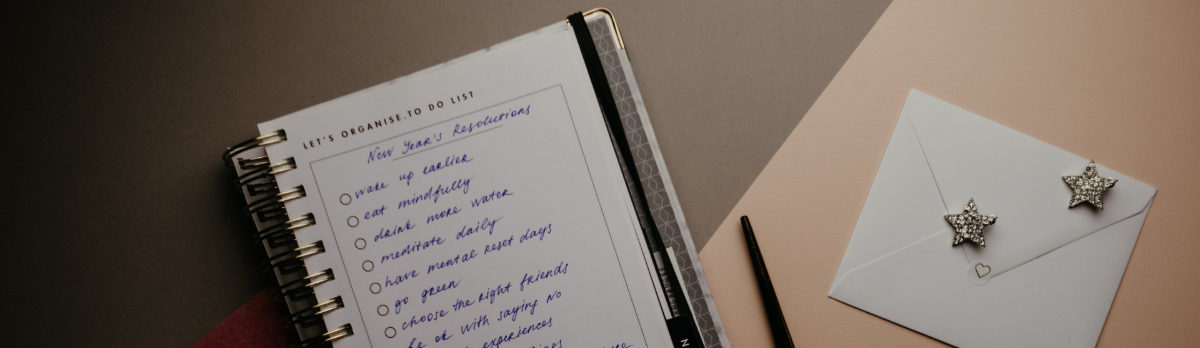 LET'S ORGANISE.TO DO LIST
New Year's Resolutions
wake up earlier
eat mindfully
drink more water
meditate daily
have mental reset days
go green
choose the right friends
be ok with saying no
experiences
N